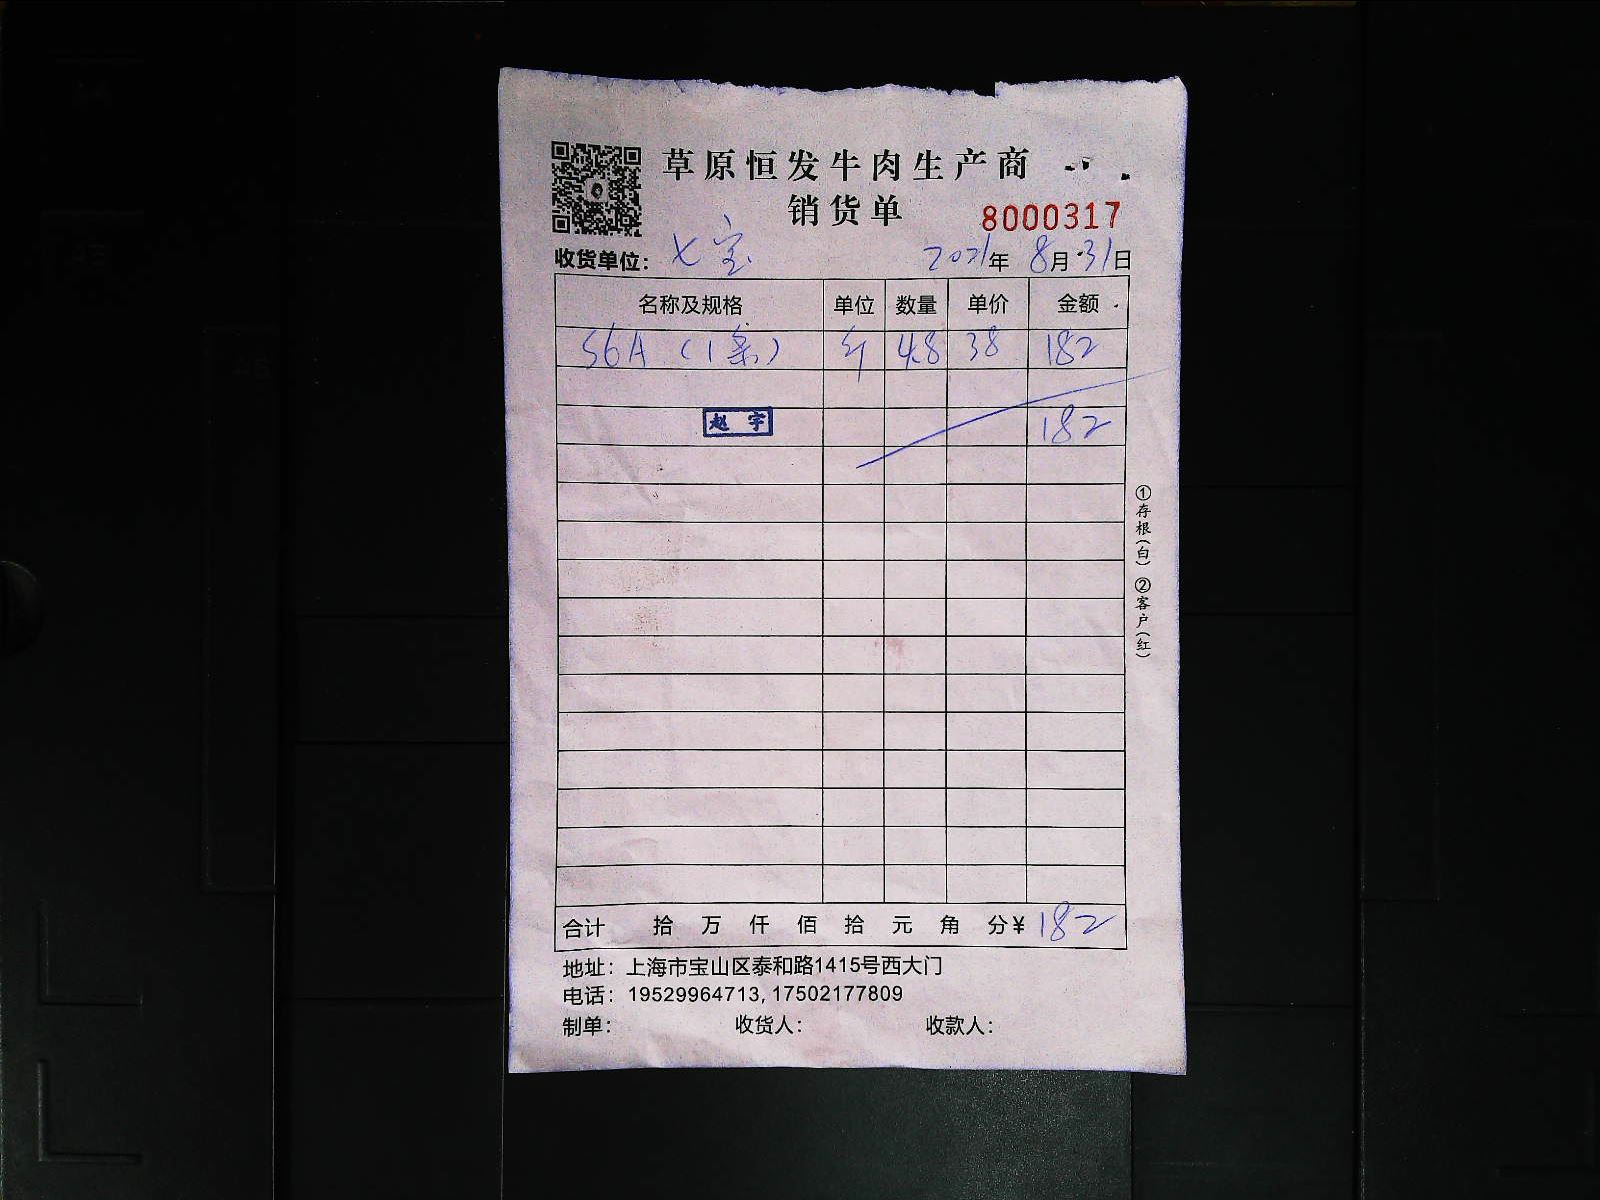 草原恒发牛肉生产商
销货单
8000317
收货单位： 七宝 2021年 8月31日
名称及规格 单位 数量 单价 金额
S6A （1条） 斤 4.8 38 182
赵宇 182
①存根（白） ②客户（红）
合计 拾 万 仟 佰 拾 元 角 分￥182
地址：上海市宝山区泰和路1415号西大门
电话：19529964713,17502177809
制单： 收货人： 收款人：